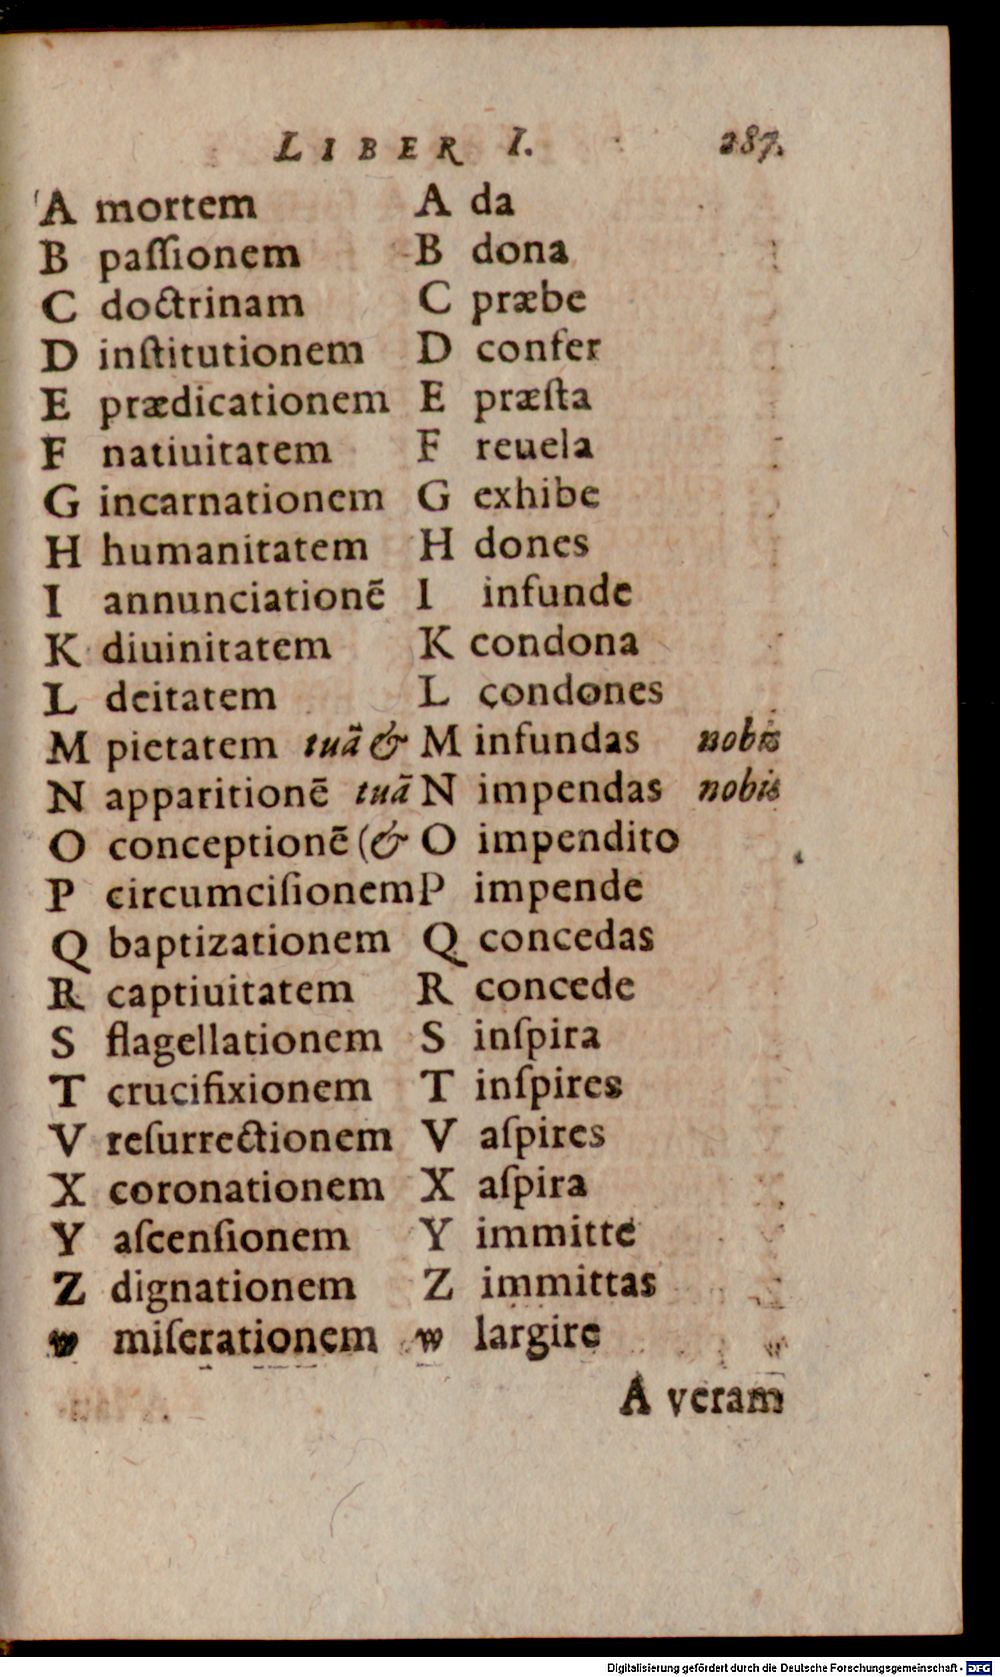 LIBER I. 287.
A mortem A da
B paſſionem B dona
C doctrinam C præbe
D inſtitutionem D confer
E prædicationem E præſta
F natiuitatem F reuela
G incarnationem G exhibe
H humanitatem H dones
I annunciationē I infunde
K diuinitatem K condona
L deitatem L condones
M pietatem tuā & M infundas nobis
N apparitionē tuā N impendas nobis
O conceptionē (& O impendito
P circumciſionem P impende
Q baptizationem Q concedas
R captiuitatem R concede
S flagellationem S inſpira
T crucifixionem T inſpires
V reſurrectionem V aſpires
X coronationem X aſpira
Y aſcenſionem Y immitte
Z dignationem Z immittas
w miſerationem w largire
A veram
Digitalisierung gefördert durch die Deutsche Forschungsgemeinschaft - DFG